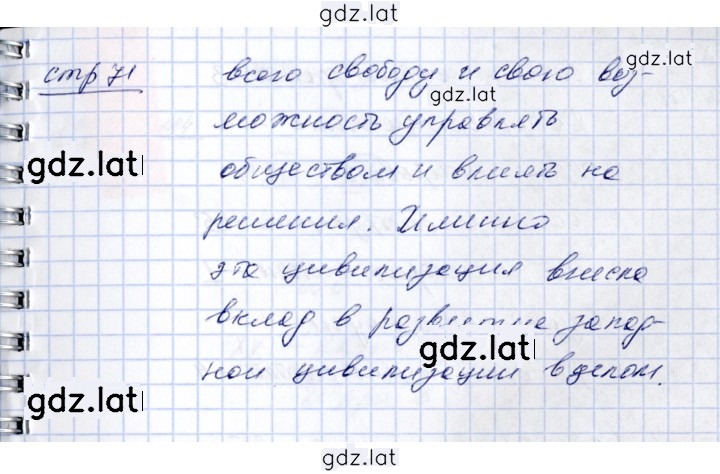 gdz.lat
стр 71
всего свободу и свою воз-
gdz.lat
можность управлять
gdz.lat
обществом и влиять на
решения. Именно
эта цивилизация внесла
gdz.lat
вклад в развитие запад-
gdz.lat
ной цивилизации в целом.
gdz.lat
gdz.lat